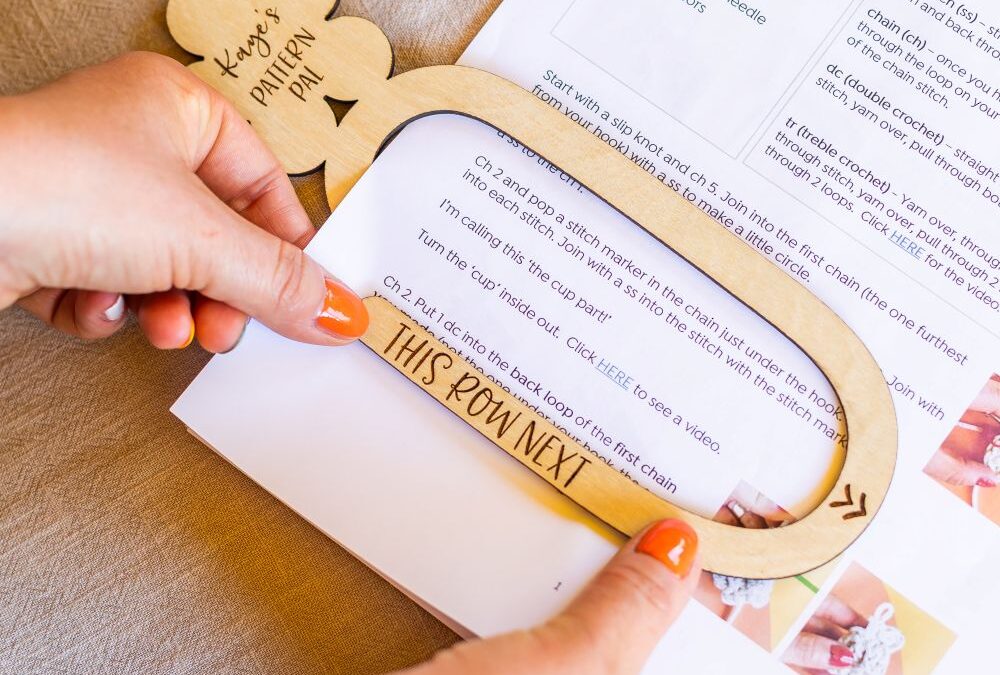 Kaye's
PATTERN
PAL
THIS ROW NEXT
Start with a slip knot and ch 5. Join into the first chain (the one furthest
from your hook) with a ss to make a little circle.
Join with
a ss to the ch1.
Ch 2 and pop a stitch marker in the chain just under the hook.
into each stitch. Join with a ss into the stitch with the stitch mark
I'm calling this 'the cup part!'
Turn the 'cup' inside out. Click HERE to see a video.
Ch 2. Put 1 dc into the back loop of the first chain
1
needle
ors
ch (ss) –
and back
chain (ch) – once you
through the loop on your
of the chain stitch.
dc (double crochet) – straight
stitch, yarn over, pull through
tr (treble crochet) – Yarn over, through
through stitch, yarn over, pull through 2
through 2 loops. Click HERE for the video